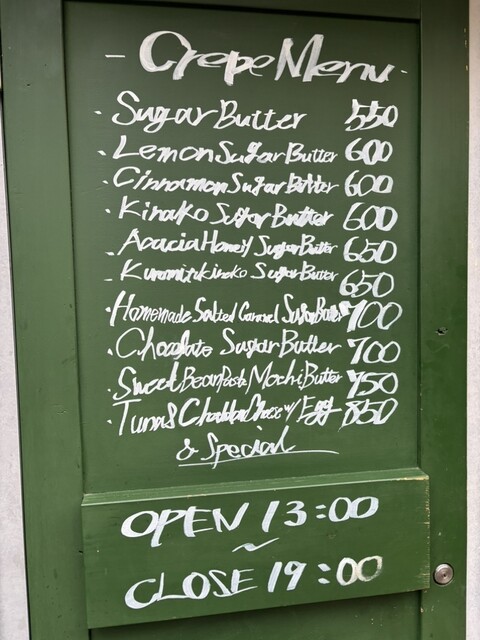 - Crepe Menu -
· Sugar Butter 550
· Lemon Sugar Butter 600
· Cinnamon Sugar Butter 600
· Kinako Sugar Butter 600
· Acacia Honey Sugar Butter 650
- Kuromitsu Kinako Sugar Butter 650
· Homemade Salted Caramel Sugar Butter 700
· Chocolate Sugar Butter 700
· Sweet Bean Paste Mochi Butter 750
· Tuna & Cheddar Cheese w/ Egg 850
& Special
OPEN 13:00
~
CLOSE 19:00